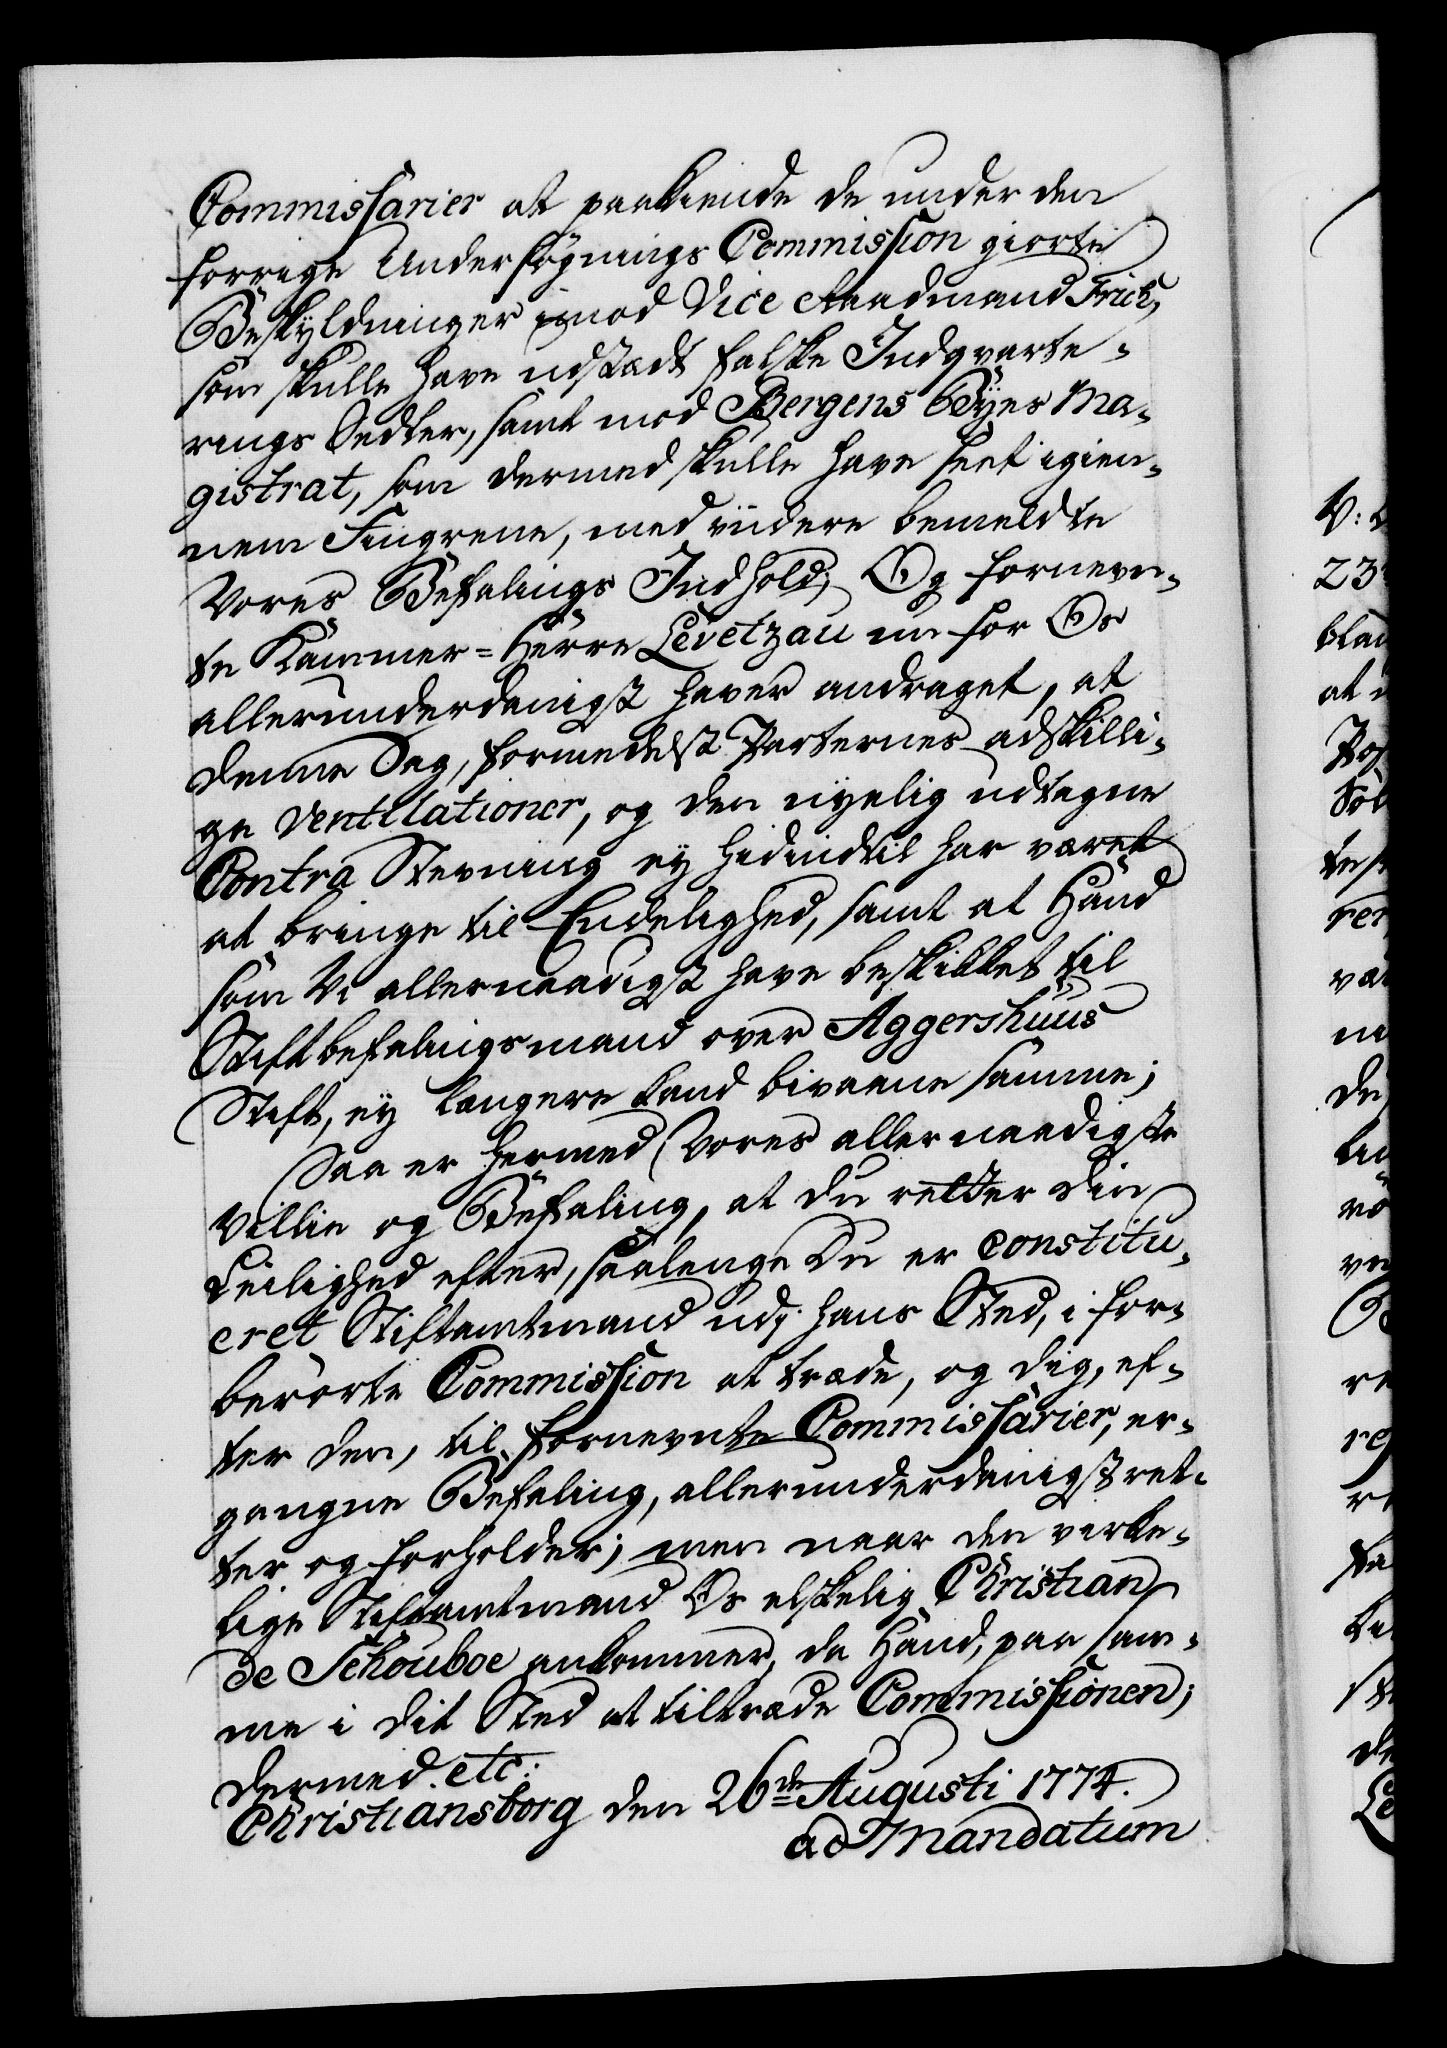 Commissarier at paakiende de under den
forrige Undersøgnings Commission giorte
Beskyldninger imod Vice Raadmand Frich,
som skulle have udstædt falske Indqvarte-
rings Sedler, samt mod Bergens Byes Ma-
gistrat, som dermed skulle have seet igien-
nem Fingrene, med viidere bemeldte
Vores Befalings Indhold; Og fornevn-
te Kammer-Herre Levetzau nu for Os
allerunderdanigst haver andraget, at
denne Sag, formedelst Parternes adskilli-
ge Ventilationer, og den nyelig udtagne
Contra Stevning ey hidindtil har været
at bringe til Endelighed, samt at Hand
som Vi allernaadigst have beskikket til
Stiftbefalingsmand over Aggershuus
Stift, ey længere kand bivaane samme;
Saa er hermed Vores allernaadigste
Villie og Befaling, at du retter din
Leilighed efter, saalenge Du er constitu-
eret Stiftamtmand udj hans Sted, i for-
berørte Commission at træde, og dig, ef-
ter den, til fornevnte Commissarier, er-
gangne Befaling, allerunderdanigst ret-
ter og forholder; men naar den virke-
lige Stiftamtmand Os elskelig Christian
de Schouboe ankommer, da Hand, paa sam-
me i dit Sted at tiltræde Commissionen;
dermed etc:
Christiansborg den 26de Augusti 1774.
ad Mandatum
V:
23
blan
at